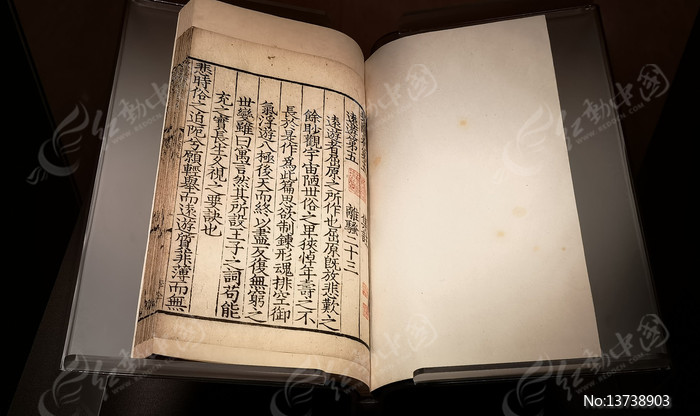 遠遊第五 離騷二十三
遠遊者屈原之所作也屈原既放悲歎之
餘眇觀宇宙陋世俗之卑狹悼年壽之不
長於是作為此篇思欲制鍊形魂排空御
氣浮遊八極後天而終以盡反復無窮之
世變雖曰寓言然其所設王子之詞苟能
充之實長生久視之要訣也
悲時俗之迫阨兮願輕舉而遠遊質菲薄而無
红动中国
No:13738903